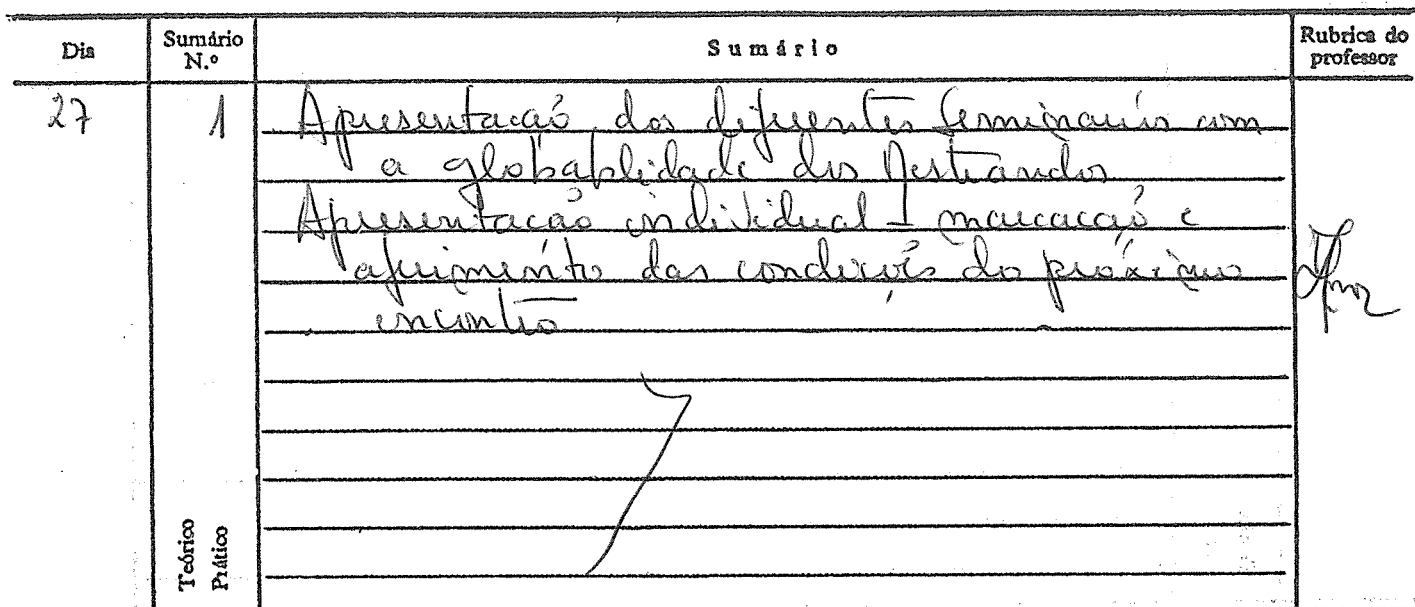 Dia Sumário N.º Sumário Rubrica do professor
27 1 Apresentação dos diferentes Seminários com
a globaplidade dos Mestrandos
Apresentação individual - marcação e
aferimento das condições do próximo
encontro
Teórico
Prático